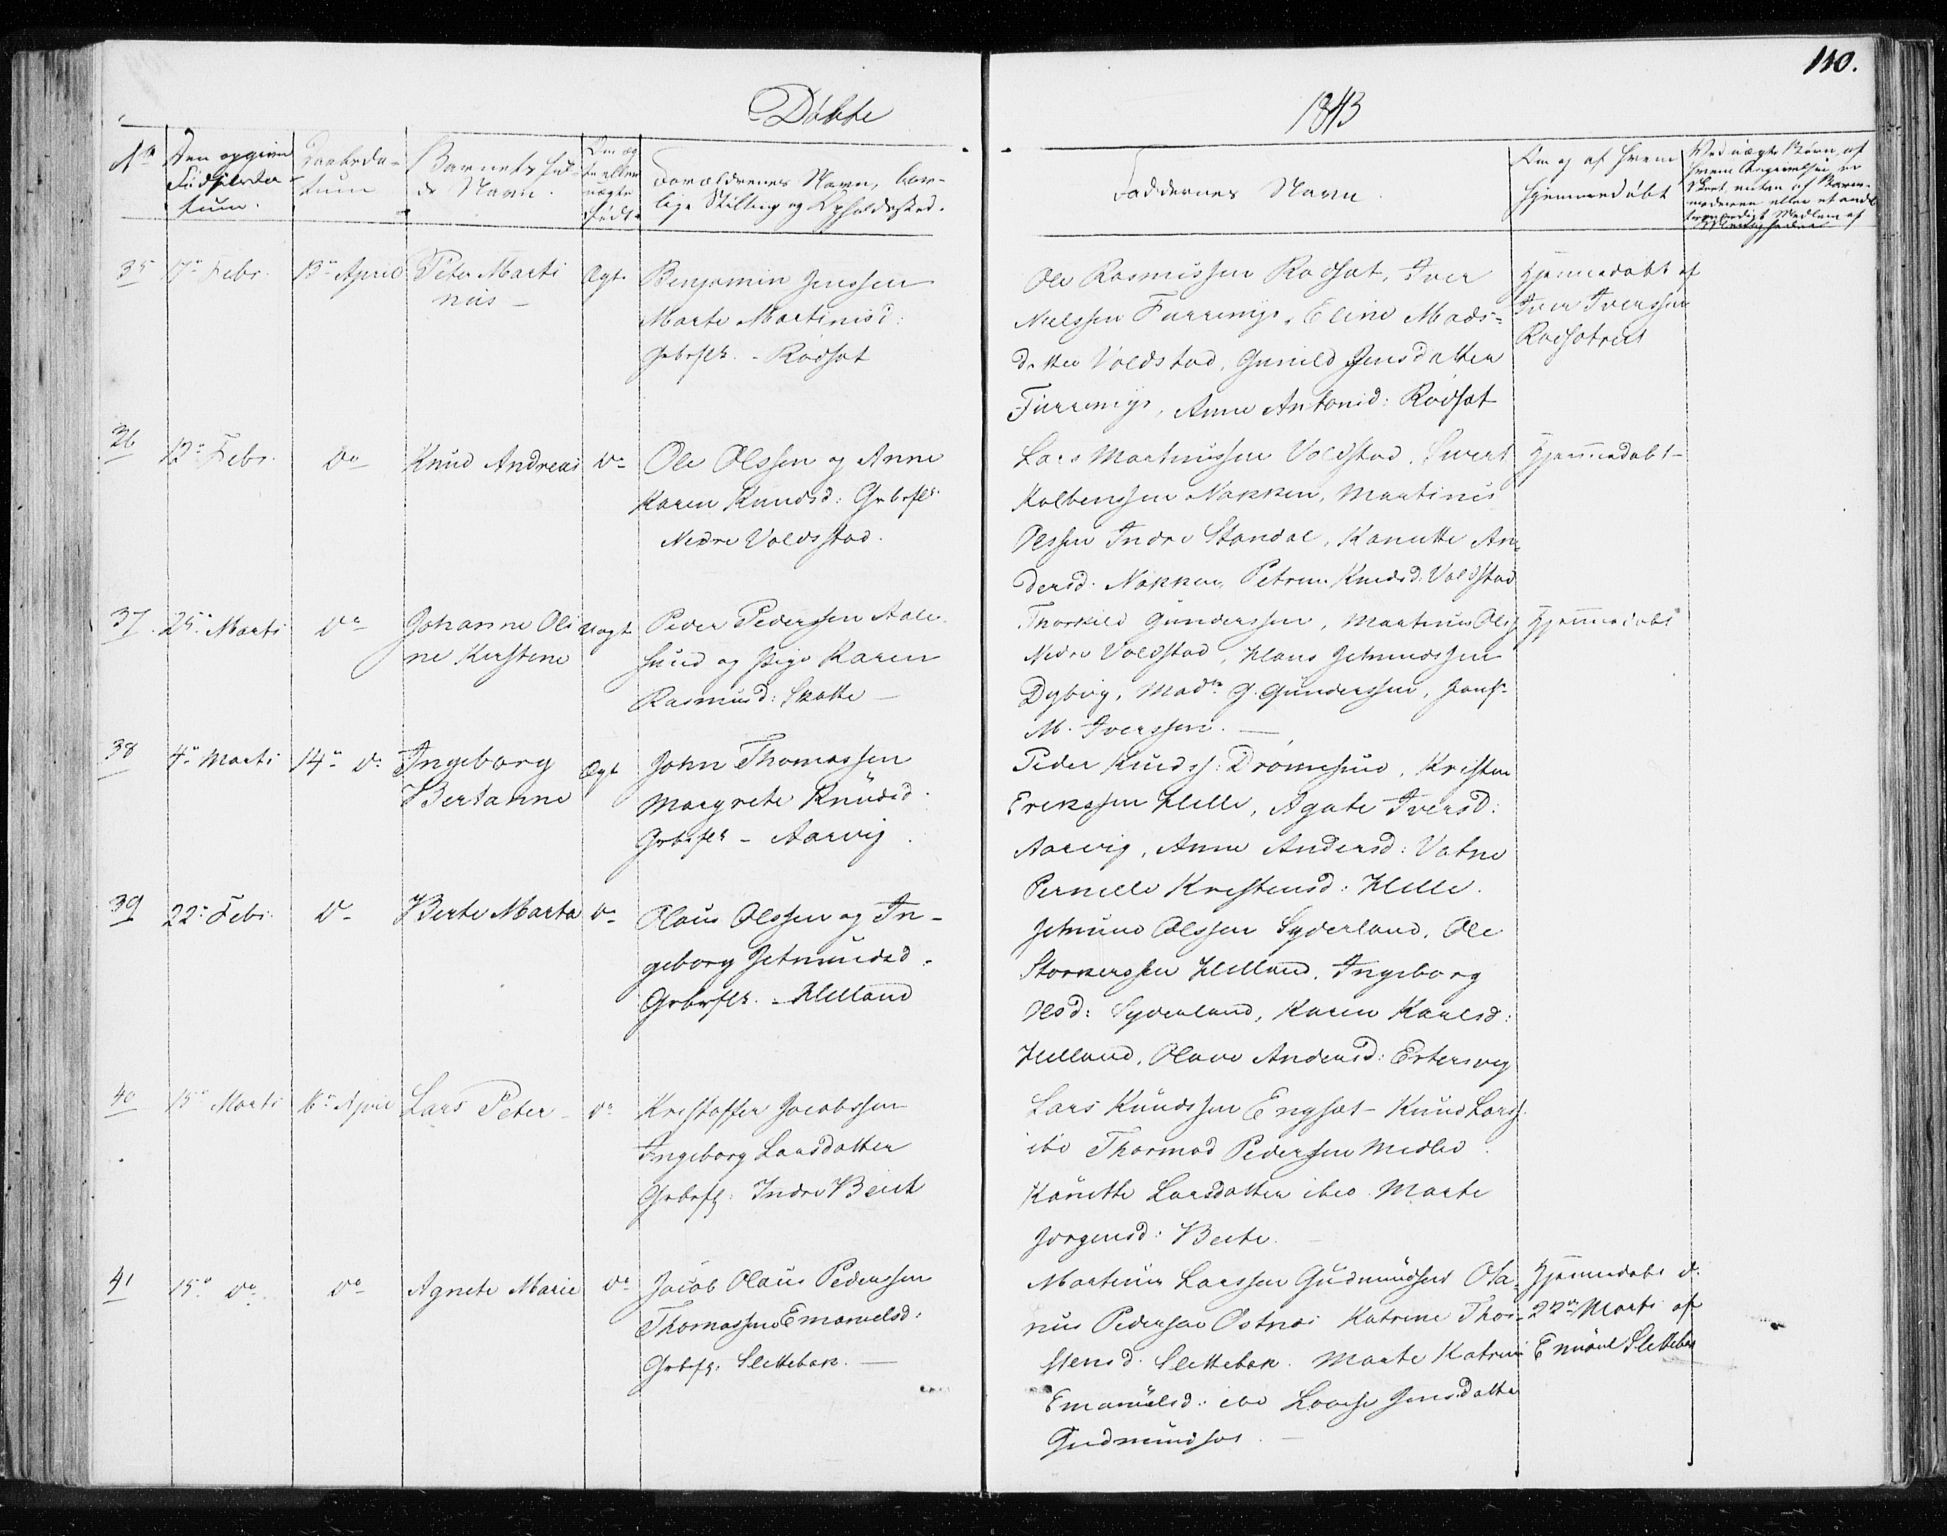 110.
Døbte
1843
No
Den opgivne
Fødselsda-
tum.
Daabsda-
tum
Barnets ful-
de Navn.
Om æg-
te eller
uægte
født.
Forældrenes Navn, bor-
lige Stilling og Opholdssted.
Faddernes Navn.
Om og af hvem
hjemmedøbt
Ved uægte Børn, af
hvem Angivelsen er
skeet, enten af Barne-
moderen eller et andet
troværdigt Medlem af
Menigheden
35
17de Febr.
13de April
Peter Marti
nus
Ægte
Benjamin Jenssen
Marte Martinisd:
Gbrflk. - Rødsæt
Ole Rasmussen Rødsæt, Iver
Nielssen Furrenys, Eline Mads-
datter Voldstad, Gunild Jensdatter
Furrenys, Anne Antonid: Rødsæt
Hjemmedøbt af
Iver Iverssen
Rødsætret
36
12te Febr.
do
Knud Andreas
do
Ole Olssen og Anne
Karen Knudsd: Gbrflk
Nedre Voldstad.
Lars Martinussen Voldstad, Sivert
Kolbenssen Nakken, Martinus
Olssen Indre Standal, Kanutte An-
dersd. Nakken, Petrine Knudsd. Voldstad
Hjemmedøbt
37
25de Marts
do
Johanne Oli
ne Kirstine
Uægte
Peder Pederssen Aale-
sund og Pige Karen
Rasmusd: Skotte
Thorkild Gunderssen, Martinus Ols.
Nedre Voldstad, Klaus Jetmundssen
Dybvig, Made G. Gunderssen, Jomf.
M. Iverssen.
Hjemmedøbt
38
4de Marts
14de do
Ingeborg
Bertanne
Ægte
John Thomassen
Margrete Knudsd.
Gbrflk - Aarvig.
Peder Knuds: Drømesund, Kristen
Erikssen Helle, Agate Iversd:
Aarvig, Anne Andersd: Vatne
Pernelle Kristensd: Helle.
39
22de Febr.
do
Berte Marta
do
Olaus Olssen og In-
geborg Jetmundsd.
Gbrflk. - Helland
Jetmund Olssen Syderland, Ole
Storkerssen Helland, Ingeborg
Olsd: Syderland, Karen Karlsd:
Helland, Olave Andersd: Estensvig
40
15de Marts
16de April
Lars Peter
do
Kristoffer Jacobssen
Ingeborg Larsdatter
Gbrflk: Indre Beite
Lars Knudssen Engsæt - Knud Larss.
ibd Thormod Pederssen Medlid
Kanutte Larsdatter ibid. Marte
Jørgensd: Beite.
41
15de do
do
Agnete Marie
do
Jacob Olaus Pederssen
Thomassine Emanuelsd:
Gbrflk. Slettebak.
Martinus Larssen Gudmundsæt Ola-
nus Pederssen Østnes Katrine Thor-
stensd. Slettebak. Marte Katrine
Emanuelsd: ibd Lovise Jensdatter
Gudmundsæt.
Hjemmedøbt d:
22de Marts af
Emanuel Slettebak